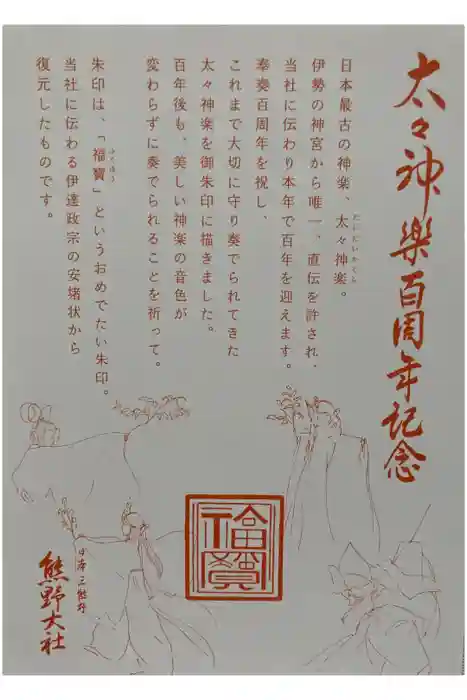 太々神樂百周年記念
日本最古の神楽、太々神楽。
だいだいかぐら
伊勢の神宮から唯一、直伝を許され、
当社に伝わり本年で百年を迎えます。
奉奏百周年を祝し、
これまで大切に守り奏でられてきた
太々神楽を御朱印に描きました。
百年後も、美しい神楽の音色が
変わらずに奏でられることを祈って。
朱印は、「福寶」というおめでたい朱印。
ふくほう
当社に伝わる伊達政宗の安堵状から
復元したものです。
福寶
日本三熊野
熊野大社